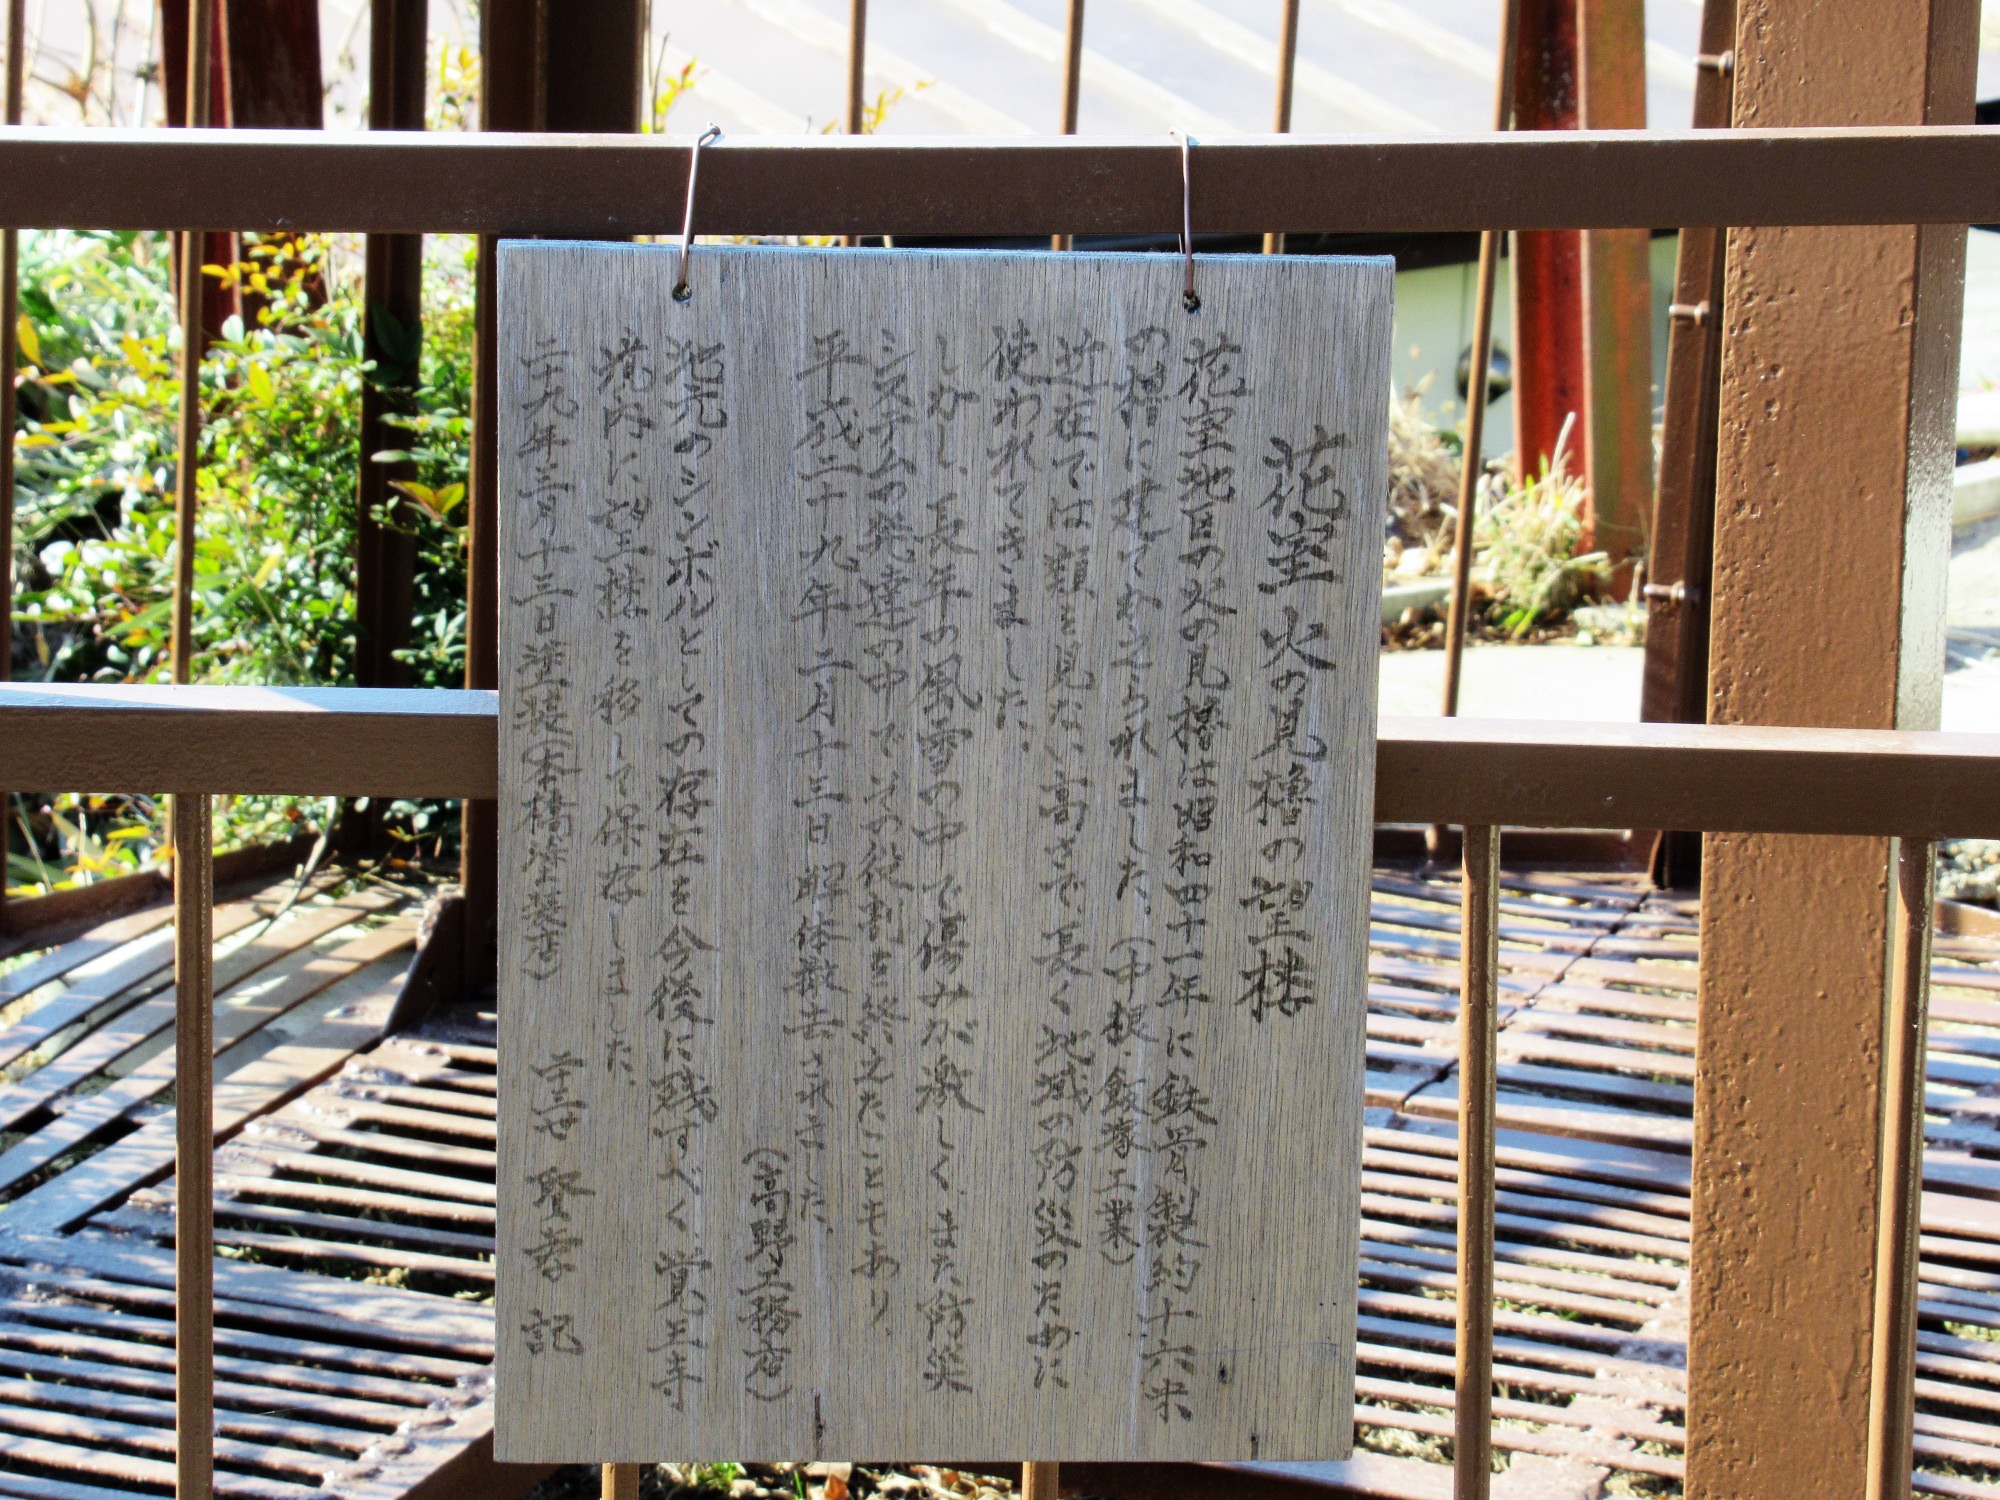 花室火の見櫓の望楼
花室地区の火の見櫓は昭和四十一年に鉄骨製約十六米
の櫓に建てかえられました。(中根・飯塚工業)
近在では類を見ない高さで、長く地域の防災のために
使われてきました。
しかし、長年の風雪の中で傷みが激しく、また防災
システムの発達の中でその役割を終えたこともあり、
平成二十九年二月十三日解体撤去されました。
(高野工務店)
地元のシンボルとしての存在を今後に残すべく、覚王寺
境内に望楼を移して保存しました。
二十九年三月十三日塗装(本橋塗装店)
記